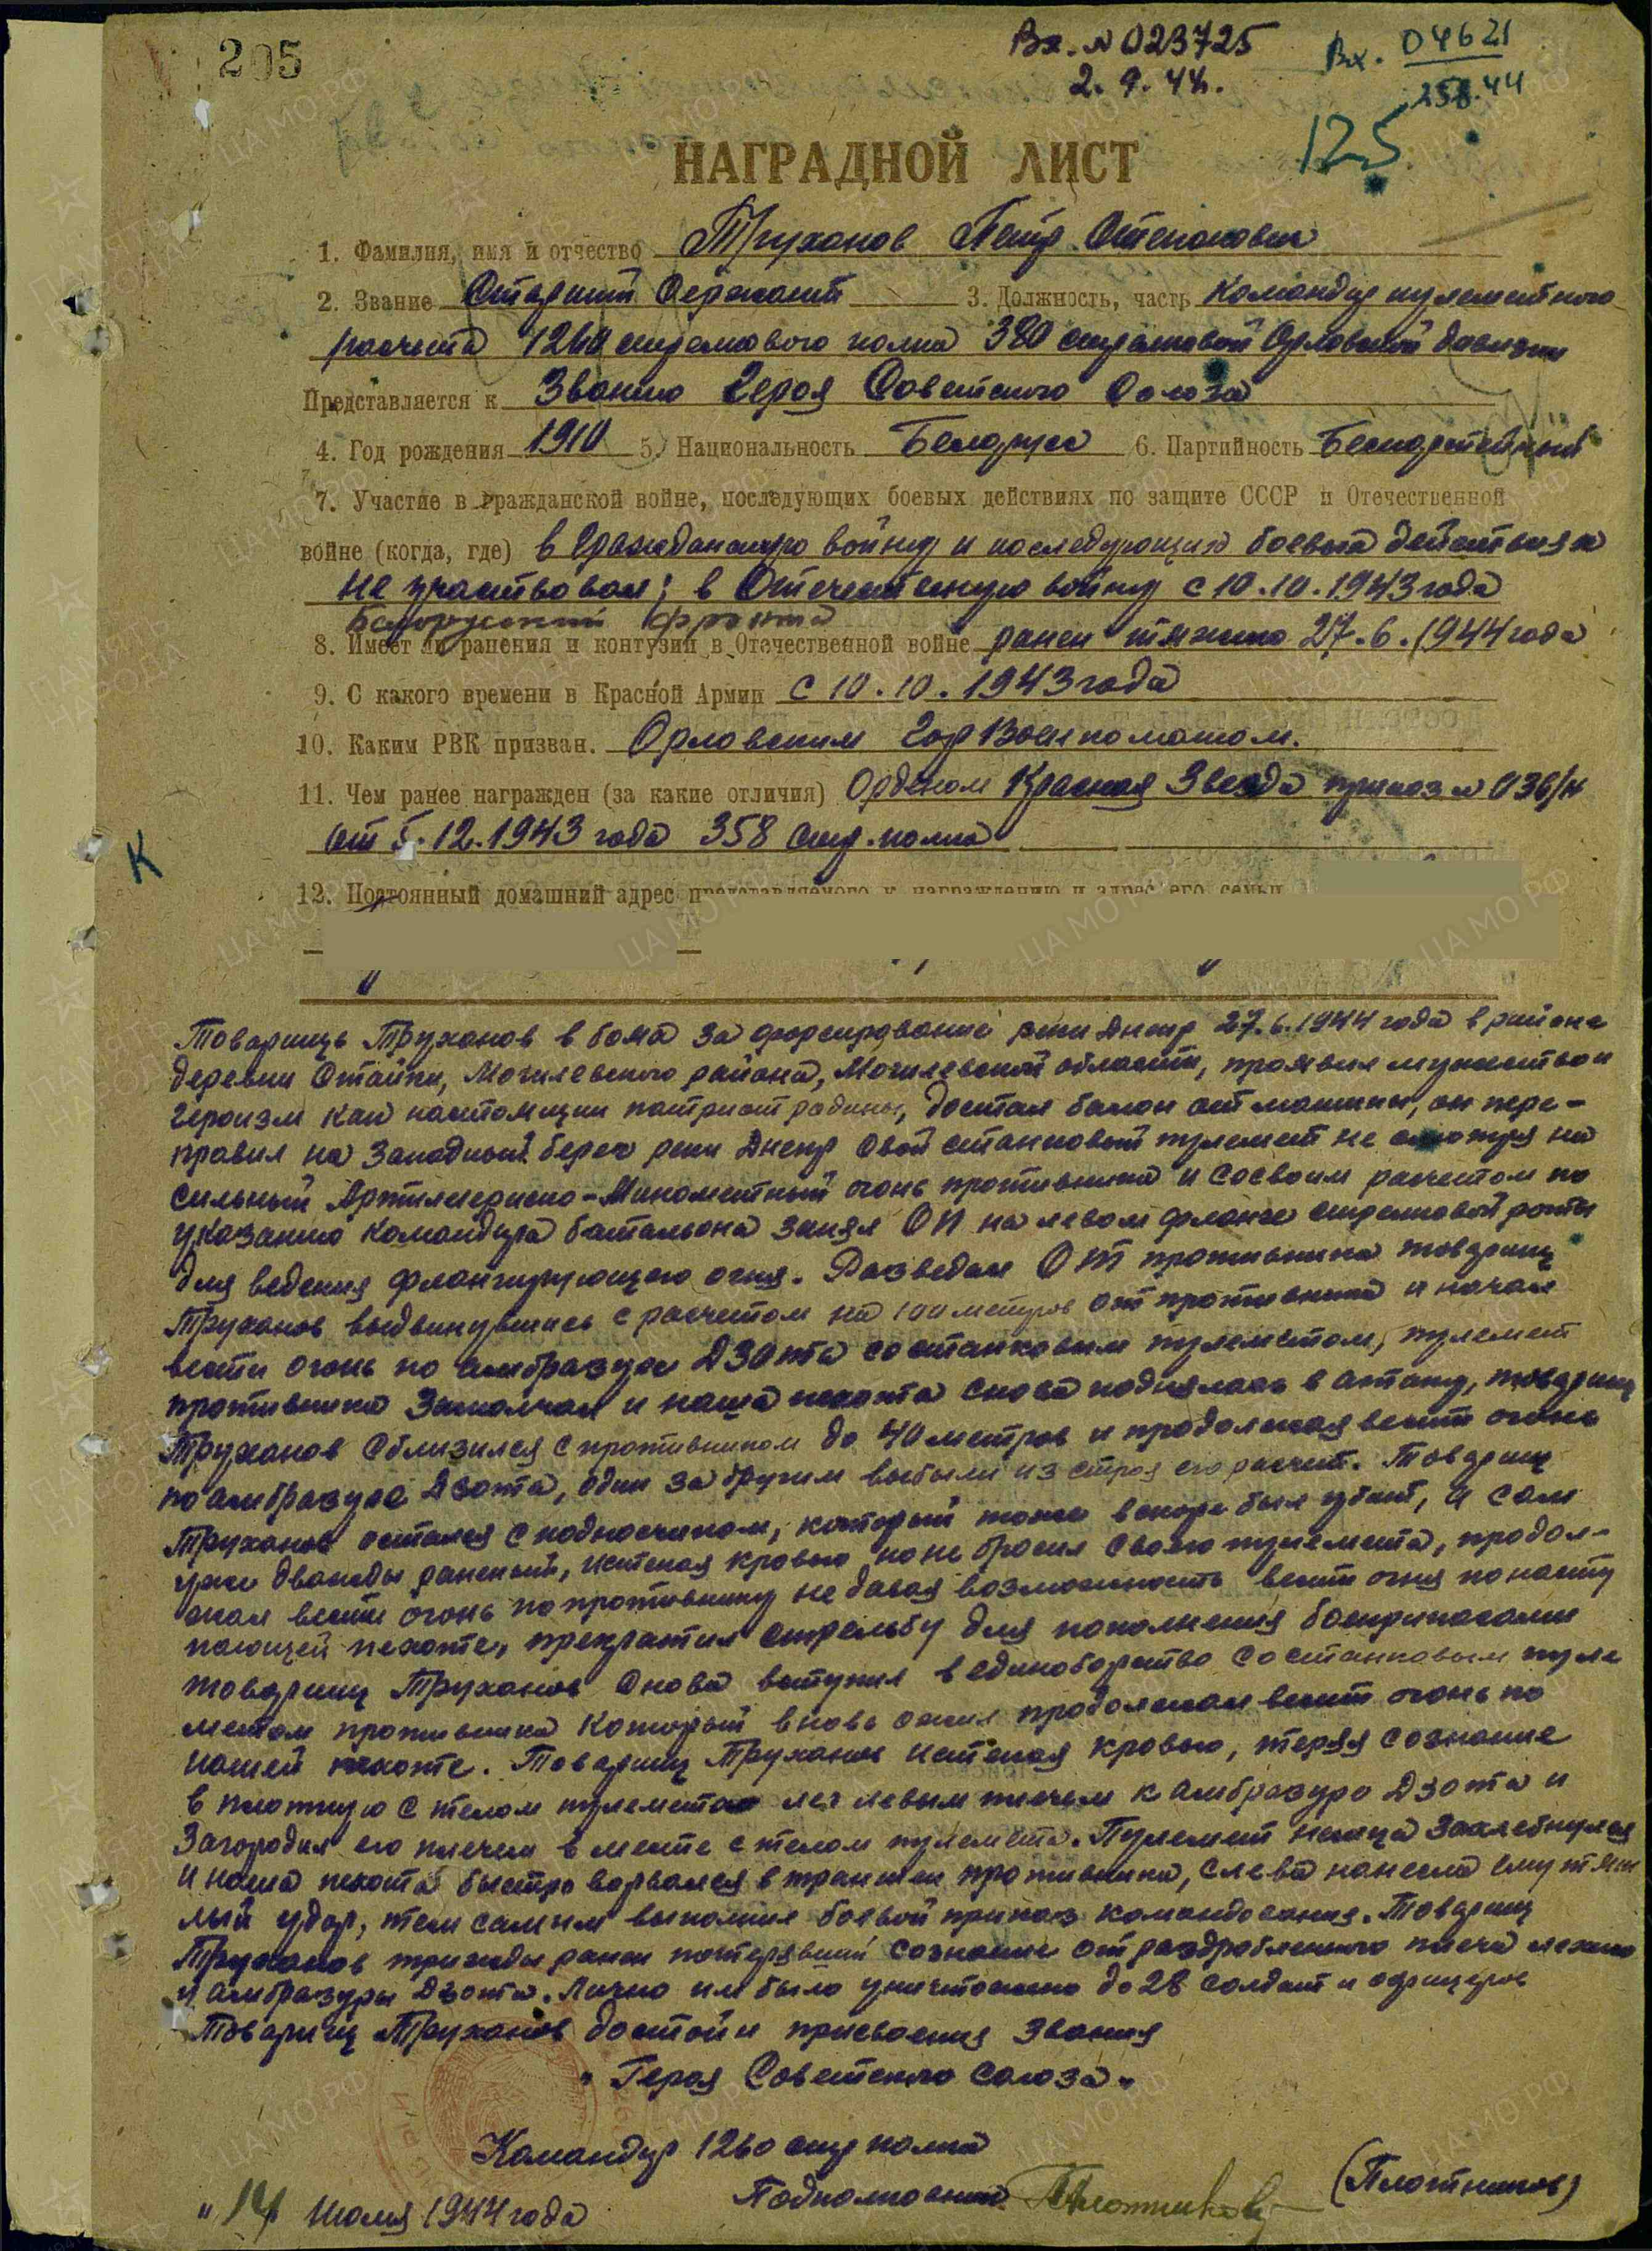 205
Вх. № 023725
2. 9. 44.
Вх. 04621
25.8.44
125
НАГРАДНОЙ ЛИСТ
1. Фамилия, имя и отчество Труханов Петр Степанович
2. Звание Старший Сержант 3. Должность, часть Командир пулеметного
расчета 1260 стрелкового полка 380 стрелковой Орловской дивизии
Представляется к Званию Героя Советского Союза
4. Год рождения 1910 5. Национальность Беларус 6. Партийность Беспартейный
7. Участие в гражданской войне, последующих боевых действиях по защите СССР и Отечественной
войне (когда, где) в Гражданскую войну и последующих боевых действиях
не участвовал; в Отечественную войну с 10.10.1943 года
Белорусский фронт
8. Имеет ли ранения и контузии в Отечественной войне ранен тяжело 27.6.1944 года
9. С какого времени в Красной Армии с 10.10.1943 года
10. Каким РВК призван. Орловским Горвоенкоматом.
11. Чем ранее награжден (за какие отличия) Орденом Красная Звезда приказ № 036/н
от 5.12.1943 года 358 стр. полка
К
12. Постоянный домашний адрес представляемого к награждению и адрес его семьи
Товарищь Труханов в боях за форсирование реки Днепр 27.6.1944 года в районе
деревни Стайки, Могилевского района, Могилевской области, проявил мужество и
героизм как настоящий патриот родины, достал балон от машины, он пере-
правил на Западный берег реки Днепр свой станковый пулемет не смотря на
сильный Артилерииско-Минометный огонь противника и со своим расчетом по
указанию командира батальона занял ОП на левом фланге стрелковой роты
для ведения фланкирующего огня. Разведал ОТ противника товарищ
Труханов выдвинувшись с расчетом на 100 метров от противника и начал
вести огонь по амбразуре ДЗОТа со станковым пулеметом, пулемет
противника Замолчал и наша пехота снова поднялась в атаку, товарищ
Труханов сблизился с противником до 40 метров и продолжая вести огонь
по амбразуре Дзота, один за другим выбыли из строя его расчет. Товарищ
Труханов остался с подносчиком, который тоже вскоре был убит, а сам
уже дважды раненый, истекая кровью но не бросил своего пулемета, продол-
жал вести огонь по противнику не давая возможность вести огня по насту
пающей пехоте, прекратил стрельбу для пополнения боеприпасами
товарищ Труханов Снова вступил в единоборство со станковым пуле
метом противника который вновь ожил продолжал вести огонь по
нашей пехоте. Товарищ Труханов истекая кровью, теряя сознание
в плотную с телом пулемета лег левым плечем к амбразуре Дзота и
Загородил его плечем в месте с телом пулемета. Пулемет немца Захлебнулся
и наша пехота быстро ворвалася в траншеи противника, слева нанесла ему тяж
лый удар, тем самым выполнил боевой приказ командования. Товарищ
Труханов трижды ранен потерявший сознание от раздробленного плеча лежал
у амбразуры Дзота. Лично им было уничтожено до 28 солдат и офицеров
Товарищ Труханов достоин присвоения Звания
„ Героя Советского Союза „
Командир 1260 стр полка
Подполковник Плотников (Плотников)
„ 14 Июля 1944 года
ЦА МО РФ
ПАМЯТЬ НАРОДА